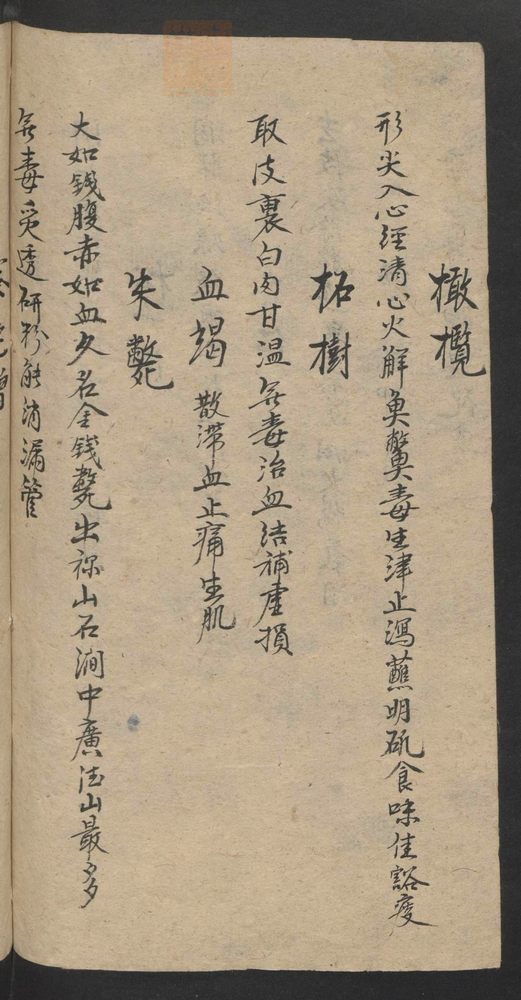 橄欖
形尖入心經清心火解魚鱉毒生津止瀉蘸明矾食味佳豁痰
柘樹
取皮裏白肉甘温無毒治血結補虛損
血竭 散滯血止痛生肌
朱鱉
大如錢腹赤如血又名金錢鱉出祢山石澗中廣德山最多
無毒炙透研粉能消漏管